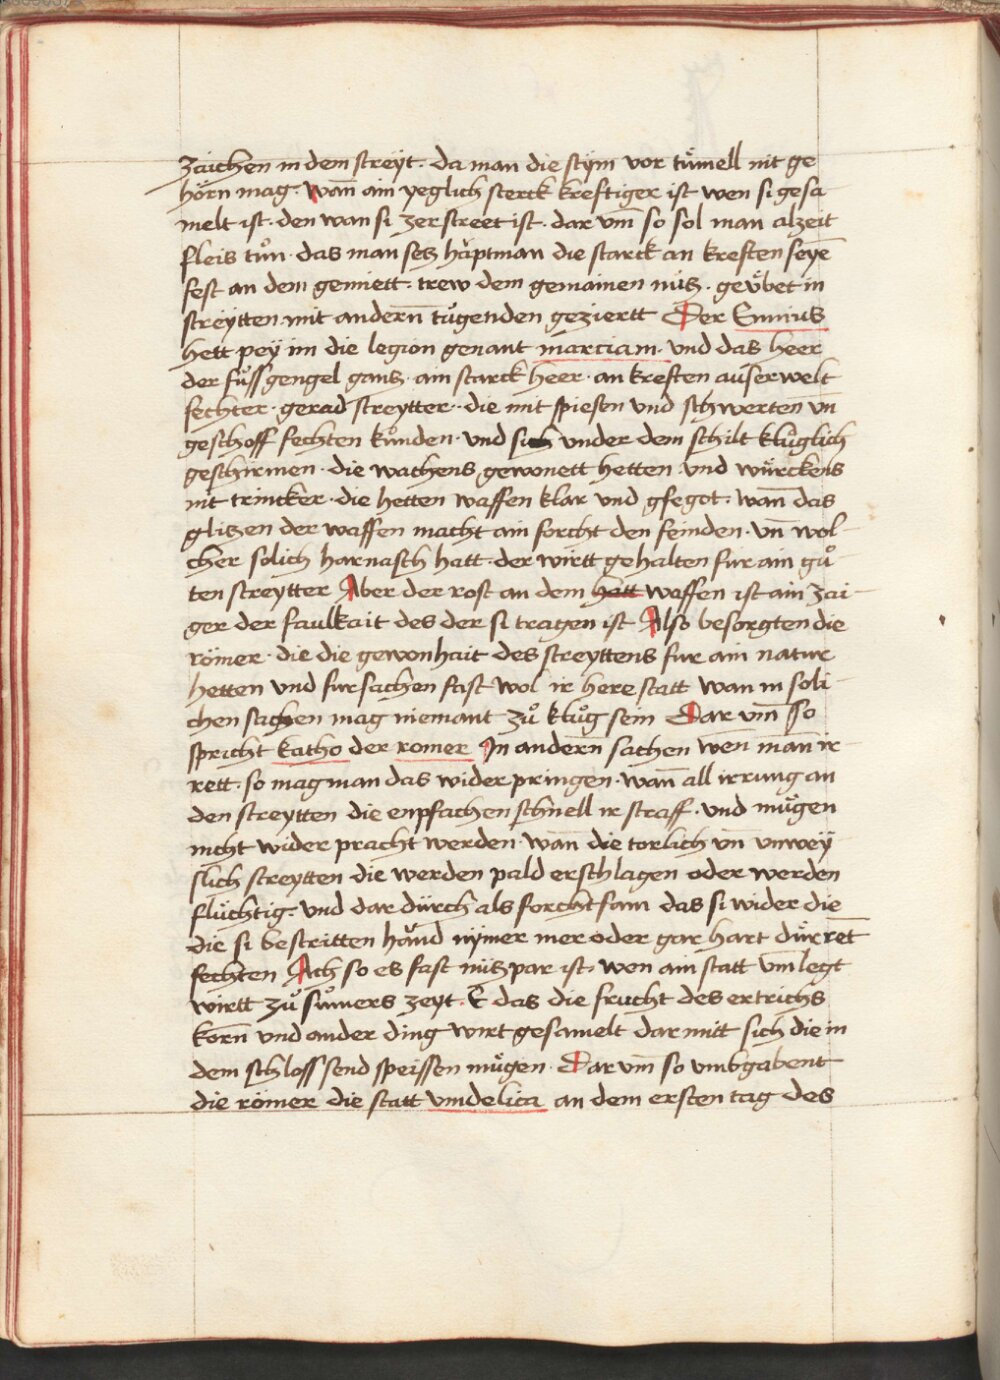 zaichen in dem streÿt · da man die stÿm vor tüͤmell nit ge
hörn mag · wañ ain yeglich sterck kreftiger ist wen si gesa
melt ist · den wan si zerstreet ist · dar vm̄ so sol man alzeit
fleis tůn · das man secz häptman die starck an kreften seyē
fest an dem gemiett · trew dem gemainen nücz · geüͤbet in
streÿtten mit andern̄ tůgenden geziertt Der Ennius
hett peÿ im die legion genant marciam · und das heer
der fůssgengel gancz · ain starck heer · an kreften auserwelt
fechter · gerad streÿtter · die mit spiesen und schwerten vn̄
geschoff fechten kůnden · und sich under dem schilt klůglich
geschirmen · die wachens gewonett hetten und wüͤrckens
nit trincker · die hetten waffen klar und gfegot · wañ das
gliczen der waffen macht ain forcht den feinden · vn̄ wol-
cher solich harnasch hatt · der wirtt gehalten fur ain gů-
ten streÿtter Aber der rost an dem hett waffen ist ain zai-
ger der faulkait des der si tragen ist Also besorgten die
römer · die die gewonhait des streÿttens fur ain natur
hetten und fursachen fast wol ir here statt wan in soli-
chen sachen mag niemant zů klůg sein Dar vm̄ so
spricht katho der romer In andern̄ sachen wen man ir-
rett · so mag man das wider pringen · wañ all irrung an
den streÿtten die enpfachen schnell ir straff · und müͤgen
nicht wider pracht werden · wañ die torlich vn̄ vnweÿ
slich streÿtten die werden pald erschlagen oder werden
flüchtig · und dar dürch als forchtsam das si wider die
die si bestritten händ nÿmer mer oder gar hart düͤrret̄
fechten Ach so es fast nücz par ist · wen ain statt vm̄legt
wirtt zů sům̄ers zeÿt · E das die frucht des ertrichs
korn̄ und ander ding wirt gesamelt dar mitt sich die in
dem schloss send speissen müͤgen · Dar vm̄ so vmbgabent
die römer die statt vindelica an dem ersten tag des